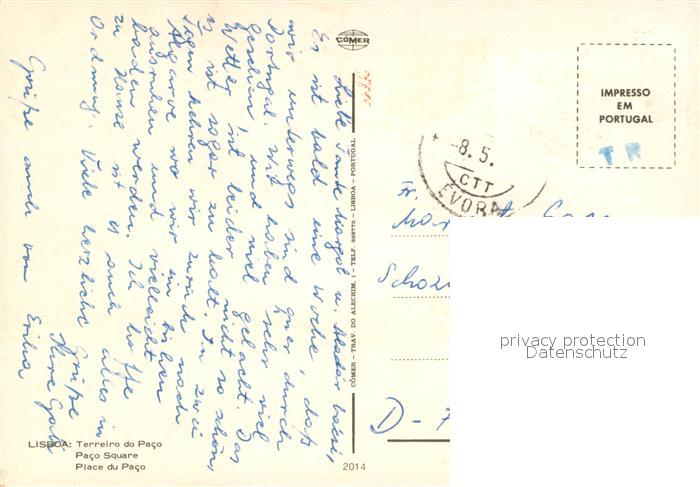 CÔMER
Liebe Tante Margot u.
Es ist bald eine Woche, daß
wir unterwegs sind quer durch
Portugal. Wir haben sehr viel
gesehen und viel gelacht. Das
Wetter ist leider nicht so schön,
es ist sogar zu kalt. In zwei
Tagen kehren wir zurück nach
Algarve wo wir ein bißchen
ausruhen und vielleicht
baden werden. Ich hoffe
zu Hause ist es auch alles in
Ordnung. Viele herzliche Grüße
Eure Gabi
Grüße auch von Erika
LISBOA: Terreiro do Paço
Paço Square
Place du Paço
CÔMER — TRAV. DO ALECRIM, 1 — TELF. 328775 — LISBOA — PORTUGAL
2014
IMPRESSO
EM
PORTUGAL
TR
-8. 5.
CTT
EVORA
Fr.
D-7
privacy protection
Datenschutz